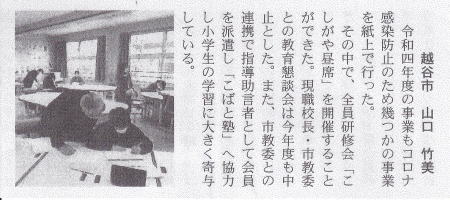 越谷市　山口　竹美
　令和四年度の事業もコロナ
感染防止のため幾つかの事業
を紙上で行った。
　その中で、全員研修会「こ
しがや昼席」を開催すること
ができた。現職校長・市教委
との教育懇談会は今年度も中
止とした。また、市教委との
連携で指導助言者として会員
を派遣し「こばと塾」へ協力
し小学生の学習に大きく寄与
している。